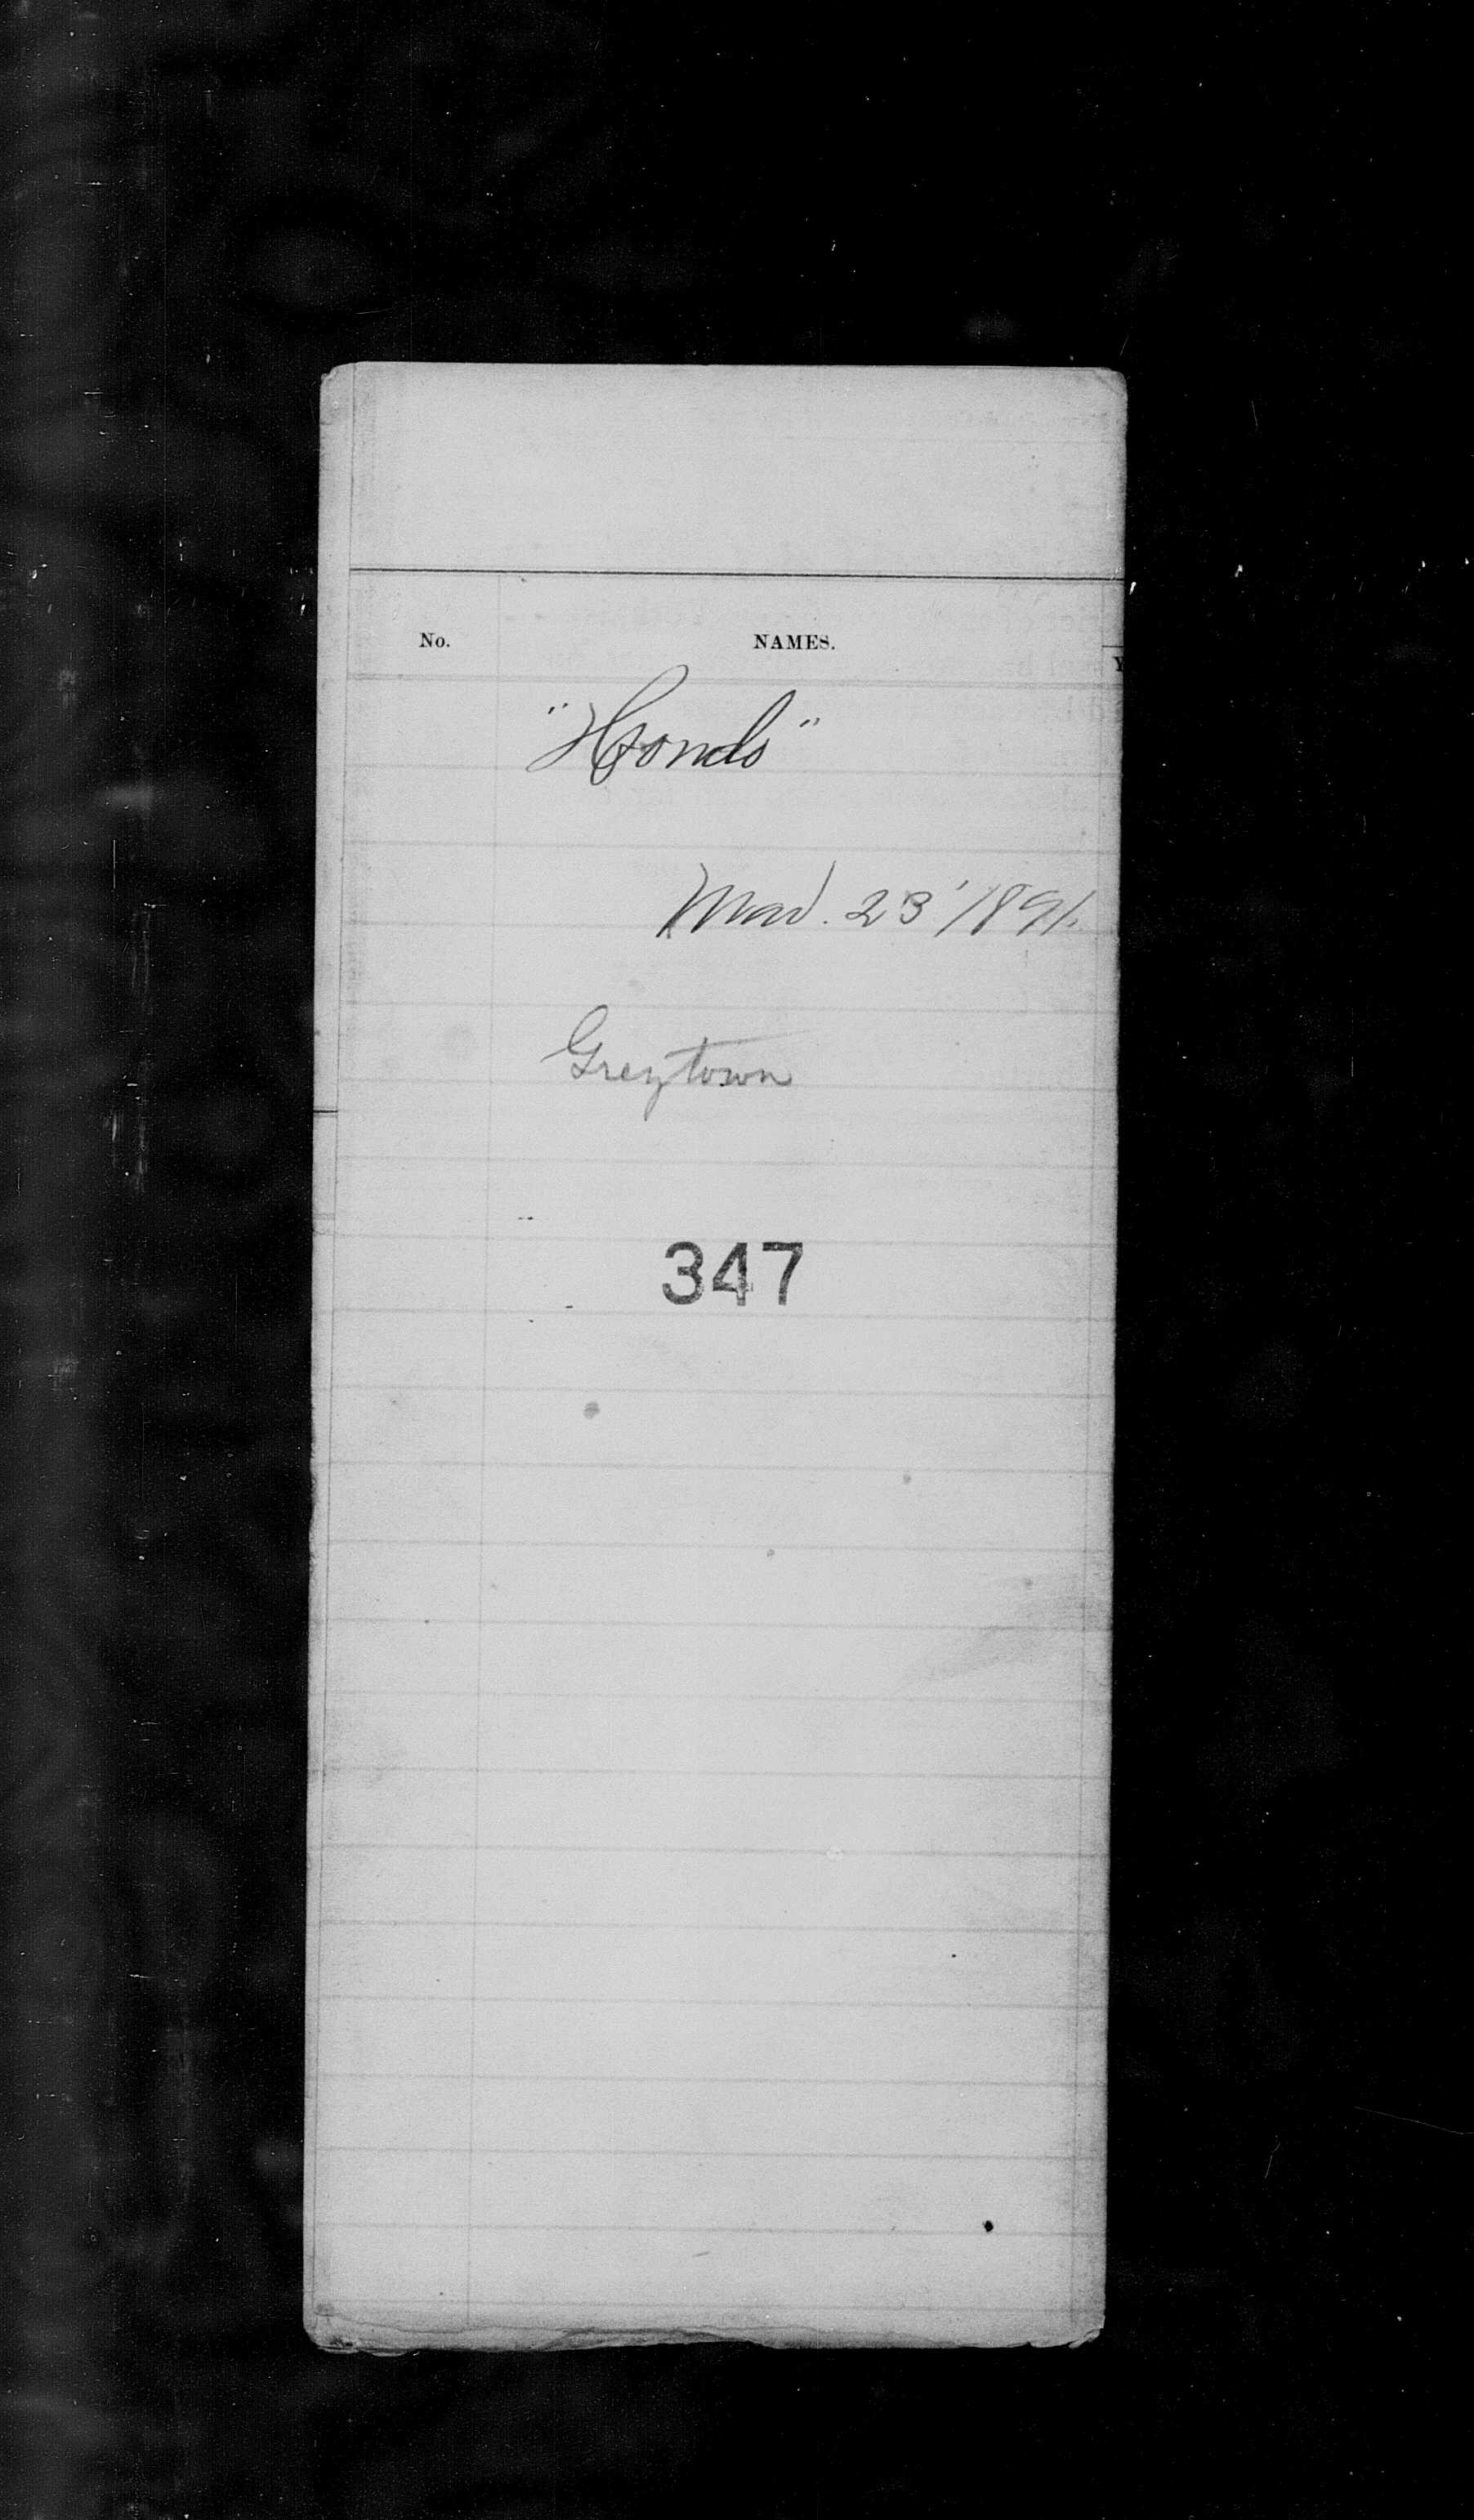 No.
NAMES.
Y
"Hondo"
Mar. 23 '1891.
Greytown
347